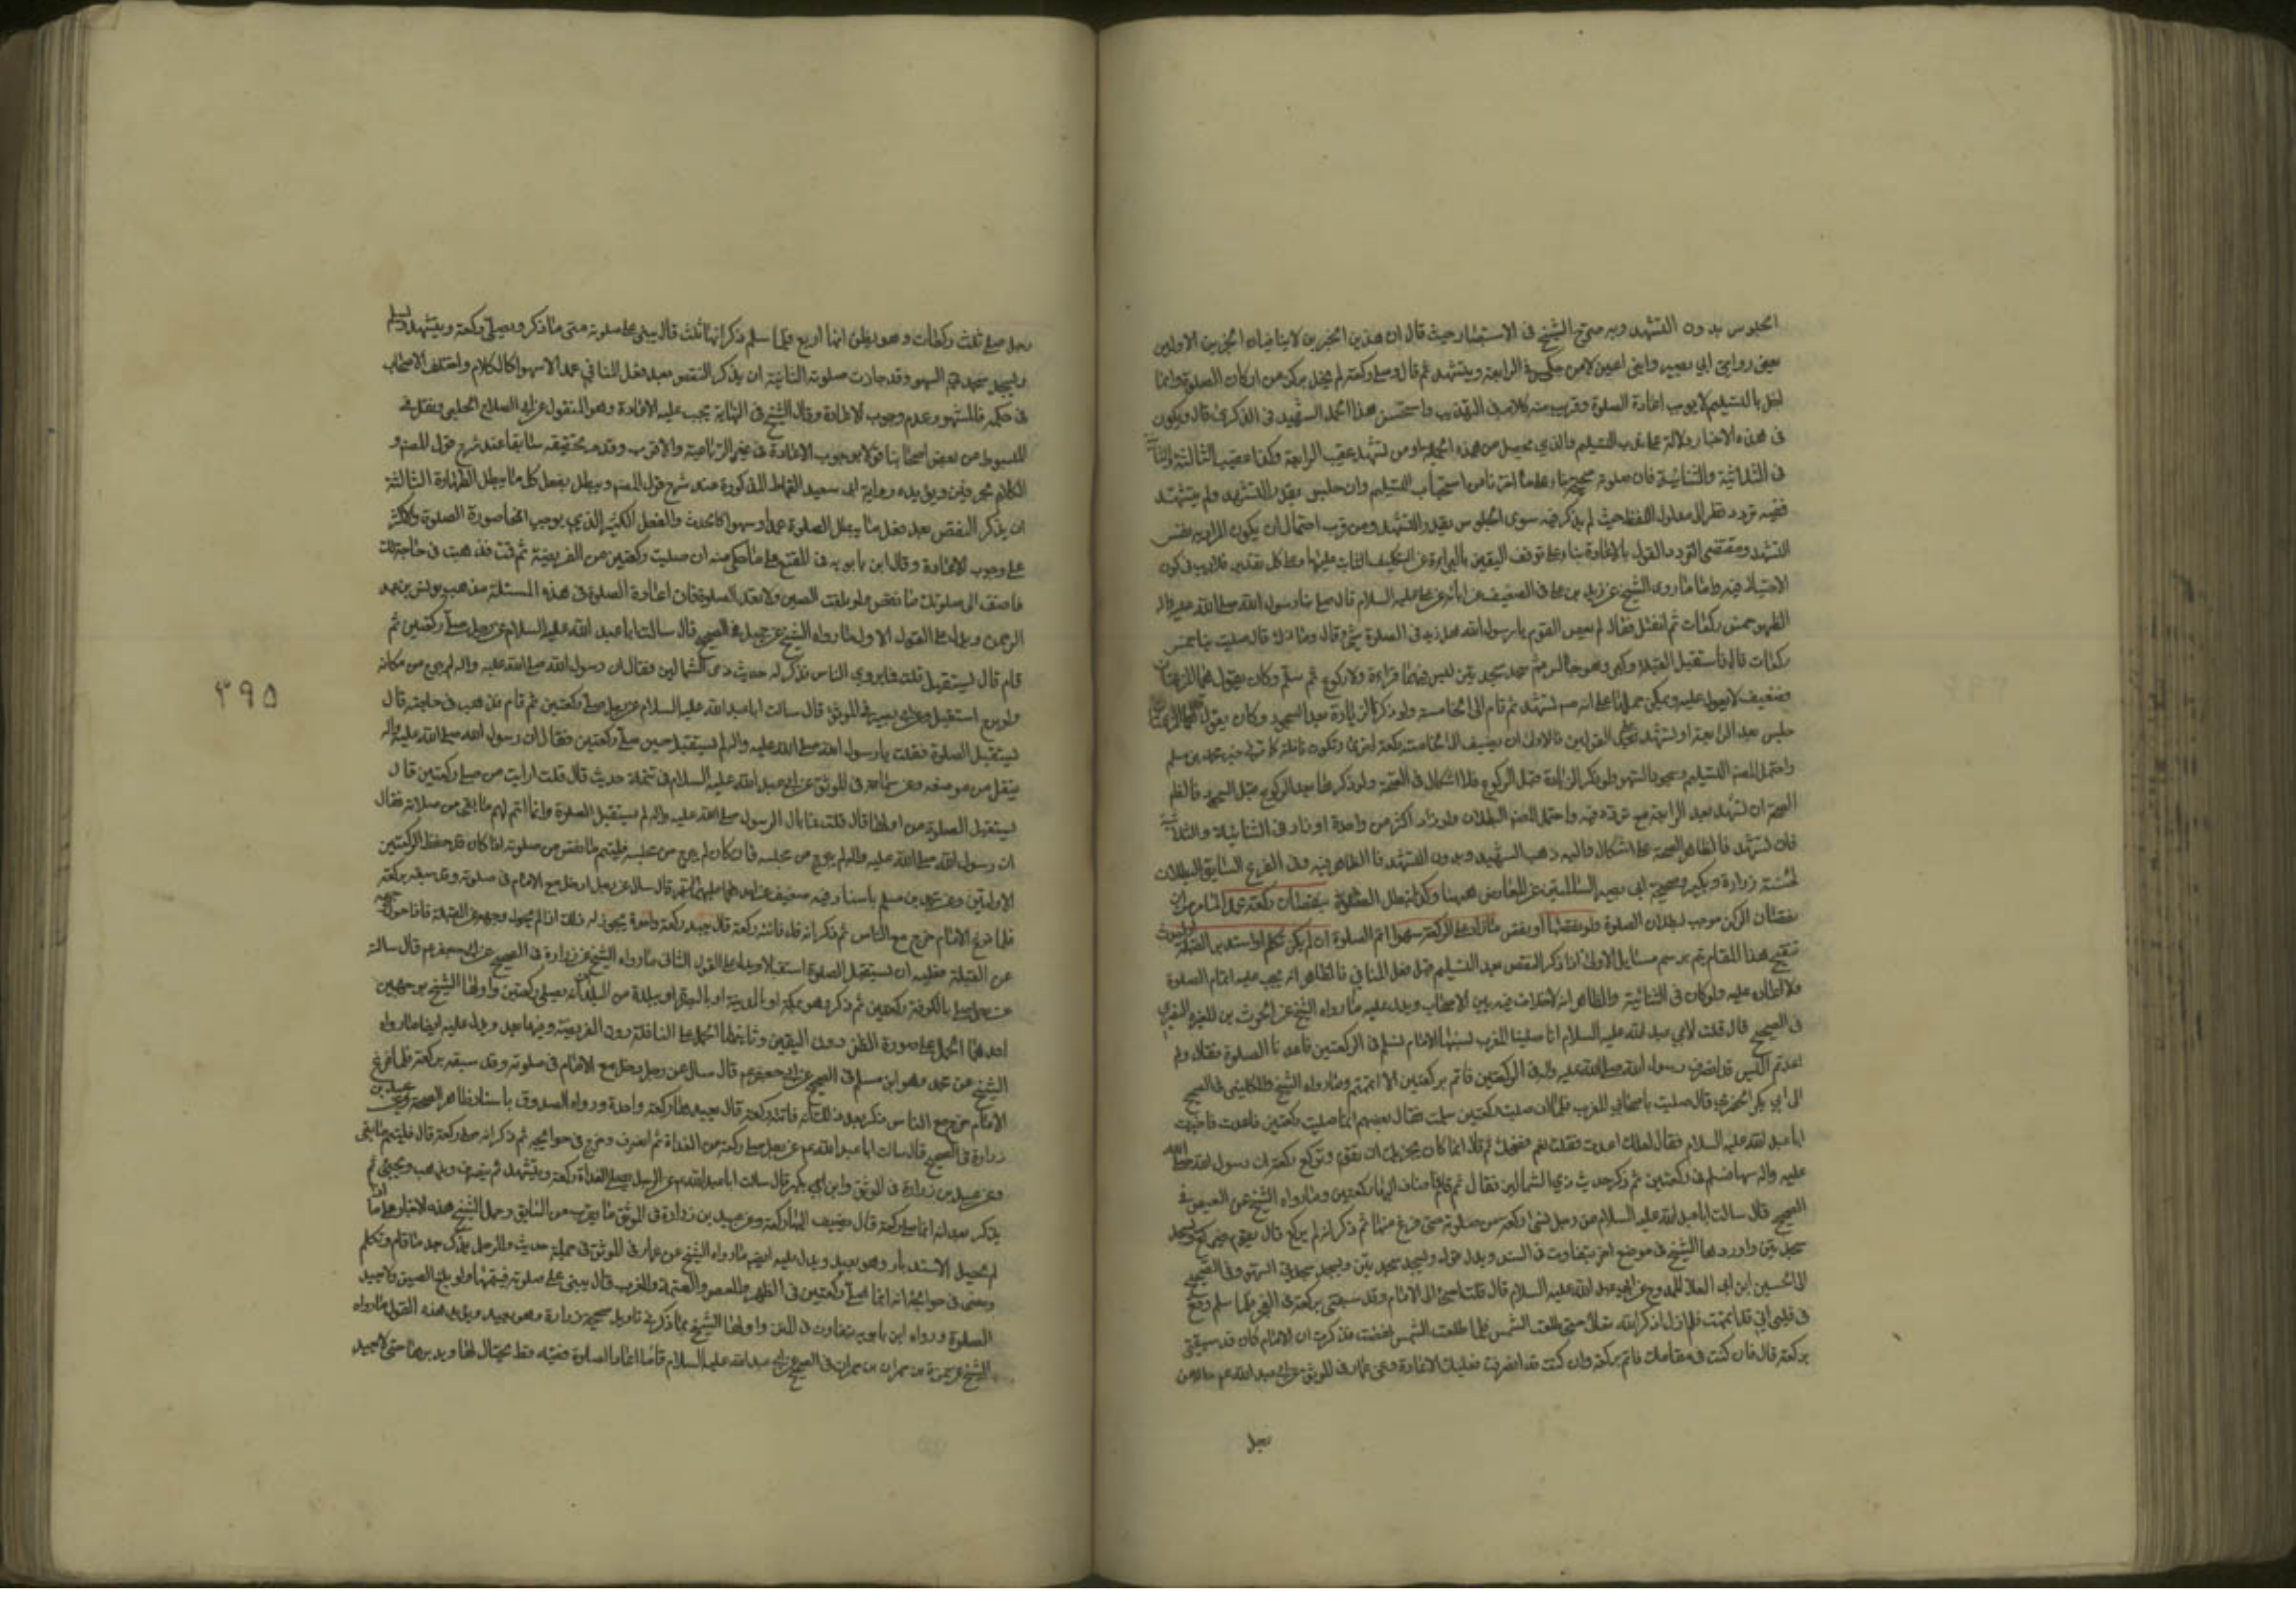 الجلوس بدون التشهد وبه صرح الشيخ فى الاستبصار حيث قال ان هذين الخبرين لا ينافيان الخبرين الاولين
يعنى روايتى ابى بصير وابنى اعين لان من جلس فى الرابعة ويتشهد ثم قال وصلى ركعة لم يخل بركن من اركان الصلوة وانما
اخل بالتسليم لا يوجب اعادة الصلوة وقريب منه كلامه فى التهذيب واستحسن هذا الحمل الشهيد فى الذكرى قال ويكون
فى هذه الاخبار دلالة على ندب التسليم والذى يحصل من هذه الجملة ان من تشهد عقيب الرابعة وكذا عقيب الثالثة والثانية
فى الثلاثية والثنائية فان صلوته صحيحة بناء على ما اخترنا من استحباب التسليم وان جلس بقدر التشهد ولم يتشهد
ففيه تردد نظرا الى مدلول اللفظ حيث لم يذكر فيه سوى الجلوس بقدر التشهد ومن قرب احتمال ان يكون المراد به نفس
التشهد ومقتضى التردد القول بالاعادة بناء على توقف اليقين بالبراءة عن التكليف الثابت عليها وعلى كل تقدير فلا ريب فى كون
الاحتياط فيه واما ما روى الشيخ عن زيد بن على فى الضعيف عن ابائه عن على عليه السلام قال صلى بنا رسول الله صلى الله عليه واله
الظهر خمس ركعات ثم انفتل فقال له بعض القوم يا رسول الله هل زيد فى الصلوة شئ قال وما ذاك قال صليت بنا خمس
ركعات قال فاستقبل القبلة وكبر وهو جالس ثم سجد سجدتين ليس فيهما قراءة ولا ركوع ثم سلم وكان يقول هما المرغمتان
فضعيف لا يعول عليه ويمكن حمله على انه ص تشهد ثم قام الى الخامسة ولو ذكر الزيادة بعد السجود وكان
جلس بعد الرابعة او تشهد على القولين فالاولى ان يضيف الى الخامسة ركعة اخرى وتكون نافلة كما فى خبر محمد بن مسلم
واحتمل المصنف التسليم وسجود السهو ولو ذكر الزيادة قبل الركوع فلا اشكال فى الصحة ولو ذكرها بعد الركوع قبل السجود فالظاهر
الصحة ان تشهد بعد الرابعة مع تردد فيه واحتمل المصنف البطلان ولو زاد اكثر من واحدة او زاد فى الثنائية والثلاثية
فان تشهد فالظاهر الصحة على اشكال واليه ذهب الشهيد وبدون التشهد فالظاهر فيه وفى الفرع السابق البطلان
لحسنة زرارة وبكير وصحيحة ابى بصير السالمتين عن المعارض ههنا وكذا تبطل الصلوة بنقصان ركعة عمدا
نقصان الركن موجب لبطلان الصلوة ولو نقصها او نقص ما زاد على الركعة سهوا اتم الصلوة ان لم يكن تكلم او استدبر القبلة
تنقيح هذا المقام يتم برسم مسايل الاولى اذا ذكر النقص بعد التسليم قبل فعل المنافى فالظاهر انه يجب عليه اتمام الصلوة
ولا بطلان عليه ولو كان فى الثنائية والظاهر انه لا خلاف فيه بين الاصحاب ويدل عليه ما رواه الشيخ عن الحرث بن المغيرة النضرى
فى الصحيح قال قلت لابى عبد الله عليه السلام انا صلينا المغرب فسها الامام فسلم فى الركعتين فاعدنا الصلوة فقال ولم
اعدتم اليس قد انصرف رسول الله صلى الله عليه واله فى الركعتين فاتم بركعتين الا اتممتم وما رواه الشيخ والكلينى فى الصحيح
الى ابى بكر الحضرمى قال صليت باصحابى المغرب فلما ان صليت ركعتين سلمت فقال بعضهم انما صليت ركعتين فاعدت فاخبرت
ابا عبد الله عليه السلام فقال لعلك اعدت فقلت نعم فضحك ثم قال انما كان يجزيك ان تقوم وتركع ركعة ان رسول الله صلى الله
عليه واله سها فسلم فى ركعتين ثم ذكر حديث ذى الشمالين فقال ثم قام فاضاف اليها ركعتين وما رواه الشيخ عن العيص فى
الصحيح قال سالت ابا عبد الله عليه السلام عن رجل نسى ركعة من صلوته حتى فرغ منها ثم ذكر انه لم يركع قال يقوم فيركع ويسجد
سجدتين واوردها الشيخ فى موضع اخر بتفاوت فى السند وبدل قوله ويسجد سجدتين ويسجد سجدتى السهو وفى الصحيح
الى الحسين ابن ابى العلا الممدوح عن ابى عبد الله عليه السلام قال قلت اجئ الى الامام وقد سبقنى بركعة فى الفجر فلما سلم وقع
فى قلبى انى قد اتممت فلم ازل اذكر الله تعالى حتى طلعت الشمس فلما طلعت الشمس نهضت فذكرت ان الامام كان قد سبقنى
بركعة قال فان كنت فى مقامك فاتم بركعة وان كنت قد انصرفت فعليك الاعادة وعن عمار فى الموثق عن ابى عبد الله عم قال عن
رجل
رجل صلى ثلث ركعات وهو يظن انها اربع فلما سلم ذكر انها ثلث قال يبنى على صلوته متى ما ذكر ويصلى ركعة ويتشهد ويسلم
ويسجد سجدتى السهو وقد جازت صلوته الثانية ان يذكر النقص بعد فعل المنافى عمدا لا سهوا كالكلام واختلف الاصحاب
فى حكمه فالمشهور عدم وجوب الاعادة وقال الشيخ فى النهاية يجب عليه الاعادة وهو المنقول عن ابى الصلاح الحلبى ونقل فى
المبسوط عن بعض اصحابنا قولا بوجوب الاعادة فى غير الرباعية والاقرب وقد مر تحقيقه سابقا عند شرح قول المصنف و
الكلام بحرفين ويؤيده رواية ابى سعيد القماط المذكورة عند شرح قول المصنف ويبطل بفعل كل ما يبطل الطهارة الثالثة
ان يذكر النقص بعد فعل ما يبطل الصلوة عمدا وسهوا كالحدث والفعل الكثير الذى يوجب انمحا صورة الصلوة والاكثر
على وجوب الاعادة وقال ابن بابويه فى المقنع على ما حكى عنه ان صليت ركعتين من الفريضة ثم قمت فذهبت فى حاجة لك
فاضف الى صلوتك ما نقص ولو بلغت الصين ولا تعد الصلوة فان اعادة الصلوة فى هذه المسئلة مذهب يونس بن عبد
الرحمن ويدل على القول الاول ما رواه الشيخ عن جميل فى الصحيح قال سالت ابا عبد الله عليه السلام عن رجل صلى ركعتين ثم
قام قال يستقبل قلت فما يروى الناس فذكر له حديث ذى الشمالين فقال ان رسول الله صلى الله عليه واله لم يبرح من مكانه
ولو برح استقبل وعن ابى بصير فى الموثق قال سالت ابا عبد الله عليه السلام عن رجل صلى ركعتين ثم قام فذهب فى حاجته قال
يستقبل الصلوة فقلت يا رسول الله صلى الله عليه واله لم يستقبل حين صلى ركعتين فقال ان رسول الله صلى الله عليه واله
ينفتل من موضعه وعن سماعة فى الموثق عن ابى عبد الله عليه السلام فى تتمة حديث قال قلت ارايت من صلى ركعتين قال
يستقبل الصلوة من اولها قال قلت فما بال الرسول صلى الله عليه واله لم يستقبل الصلوة وانما اتم لهم ما بقى من صلاته فقال
ان رسول الله صلى الله عليه واله لم يبرح من مجلسه فان كان لم يبرح من مجلسه فليتم ما نقص من صلوته اذا كان قد حفظ الركعتين
الاولتين وعن محمد بن مسلم باسناد فيه ضعيف عن احدهما عليهما السلام قال سئل عن رجل دخل مع الامام فى صلوته وقد سبقه بركعة
فلما فرغ الامام خرج مع الناس ثم ذكر انه قد فاتته ركعة قال يعيد ركعة واحدة يجوز له ذلك اذا لم يحول وجهه عن القبلة فاذا حول وجهه
عن القبلة فعليه ان يستقبل الصلوة استقبالا ويدل على القول الثانى ما رواه الشيخ عن زرارة فى الصحيح عن ابى جعفر عم قال سالته
عن رجل صلى بالكوفة ركعتين ثم ذكر وهو بمكة او بالمدينة او بالبصرة او ببلدة من البلدان يصلى ركعتين واولها الشيخ بوجهين
احدهما الحمل على صورة الظن دون اليقين وثانيهما الحمل على النافلة دون الفريضة وفيهما بعد ويدل عليه ايضا ما رواه
الشيخ عن محمد وهو ابن مسلم فى الصحيح عن ابى جعفر عم قال سئل عن رجل دخل مع الامام فى صلوته وقد سبقه بركعة فلما فرغ
الامام خرج مع الناس ثم ذكر بعد ذلك انه فاتته ركعة قال يعيدها ركعة واحدة ورواه الصدوق باسناد ظاهر الصحة وعن عبيد بن
زرارة فى الصحيح قال سالت ابا عبد الله عم عن رجل صلى ركعة من الغداة ثم انصرف وخرج فى حوائجه ثم ذكر انه صلى ركعة قال فليتم ما بقى
وعن عبيد بن زرارة فى الموثق وابن ابى بكير قال سالت ابا عبد الله عم عن الرجل يصلى الغداة ركعة ويتشهد ثم ينصرف ويذهب ويجئ ثم
يذكر بعد انه انما صلى ركعة قال يضيف اليها ركعة وعن عبيد بن زرارة فى الموثق ما يقرب من السابق وحمل الشيخ هذه الاخبار على ما اذا
لم يحصل الاستدبار وهو بعيد ويدل عليه ايضا ما رواه الشيخ عن عمار فى الموثق فى جملة حديث والرجل يذكر بعد ما قام وتكلم
ومضى فى حوائجه انه انما صلى ركعتين فى الظهر والعصر والعتمة والمغرب قال يبنى على صلوته فيتمها ولو بلغ الصين ولا يعيد
الصلوة ورواه ابن بابويه بتفاوت فى المتن واولها الشيخ بما ذكر فى تاويل صحيحة زرارة وهو بعيد ويؤيد هذه القول ما رواه
الشيخ عن حمزة بن حمران فى الصحيح عن ابى عبد الله عليه السلام قال ما اعاد الصلوة فقيه قط يحتال لها ويدبرها حتى لا يعيد
٣٩٥